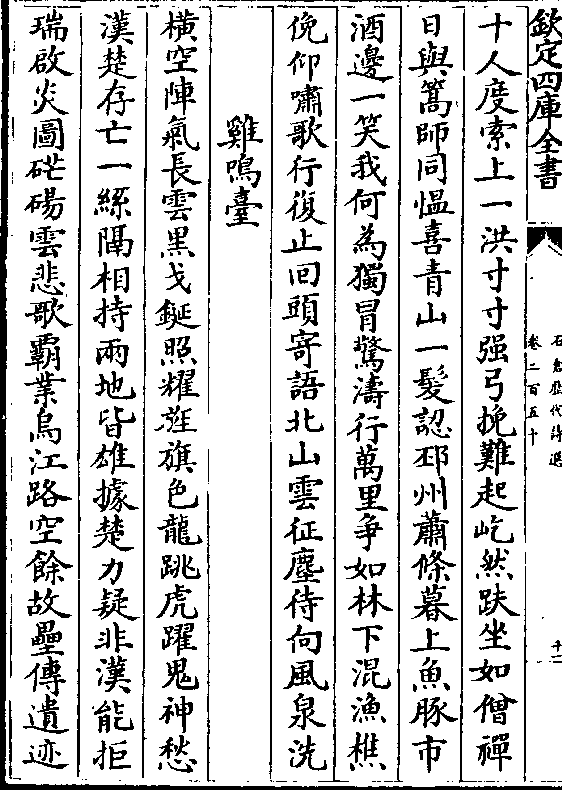 欽定四庫全書
石倉歷代詩選
卷二百五十
十二
十人度索上一洪寸寸强弓挽難起屹然趺坐如僧禪
日與篙師同愠喜青山一髮認邳州蕭條暮上魚豚市
酒邊一笑我何為獨冒驚濤行萬里爭如林下混漁樵
俛仰嘯歌行復止回頭寄語北山雲征塵待向風泉洗
雞鳴臺
橫空陣氣長雲黑戈鋋照耀旌旗色龍跳虎躍鬼神愁
漢楚存亡一絲隔相持兩地皆雄據楚力疑非漢能拒
瑞啟炎圖硭碭雲悲歌霸業烏江路空餘故壘傳遺迹